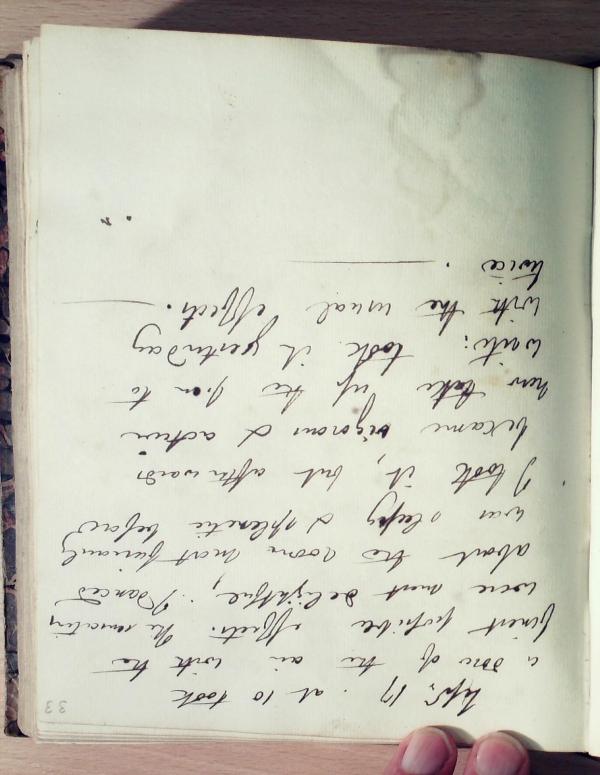 33
17. at 10 took
a dose of the air with the
finest possible effects. The sensations
were most delightful; I danced
about the room most furiously
was sleepy & splenetic before
I took it, but afterwards
became vigorous & active
now take up the pen to
write: took it yesterday
with the usual effects.
twice.